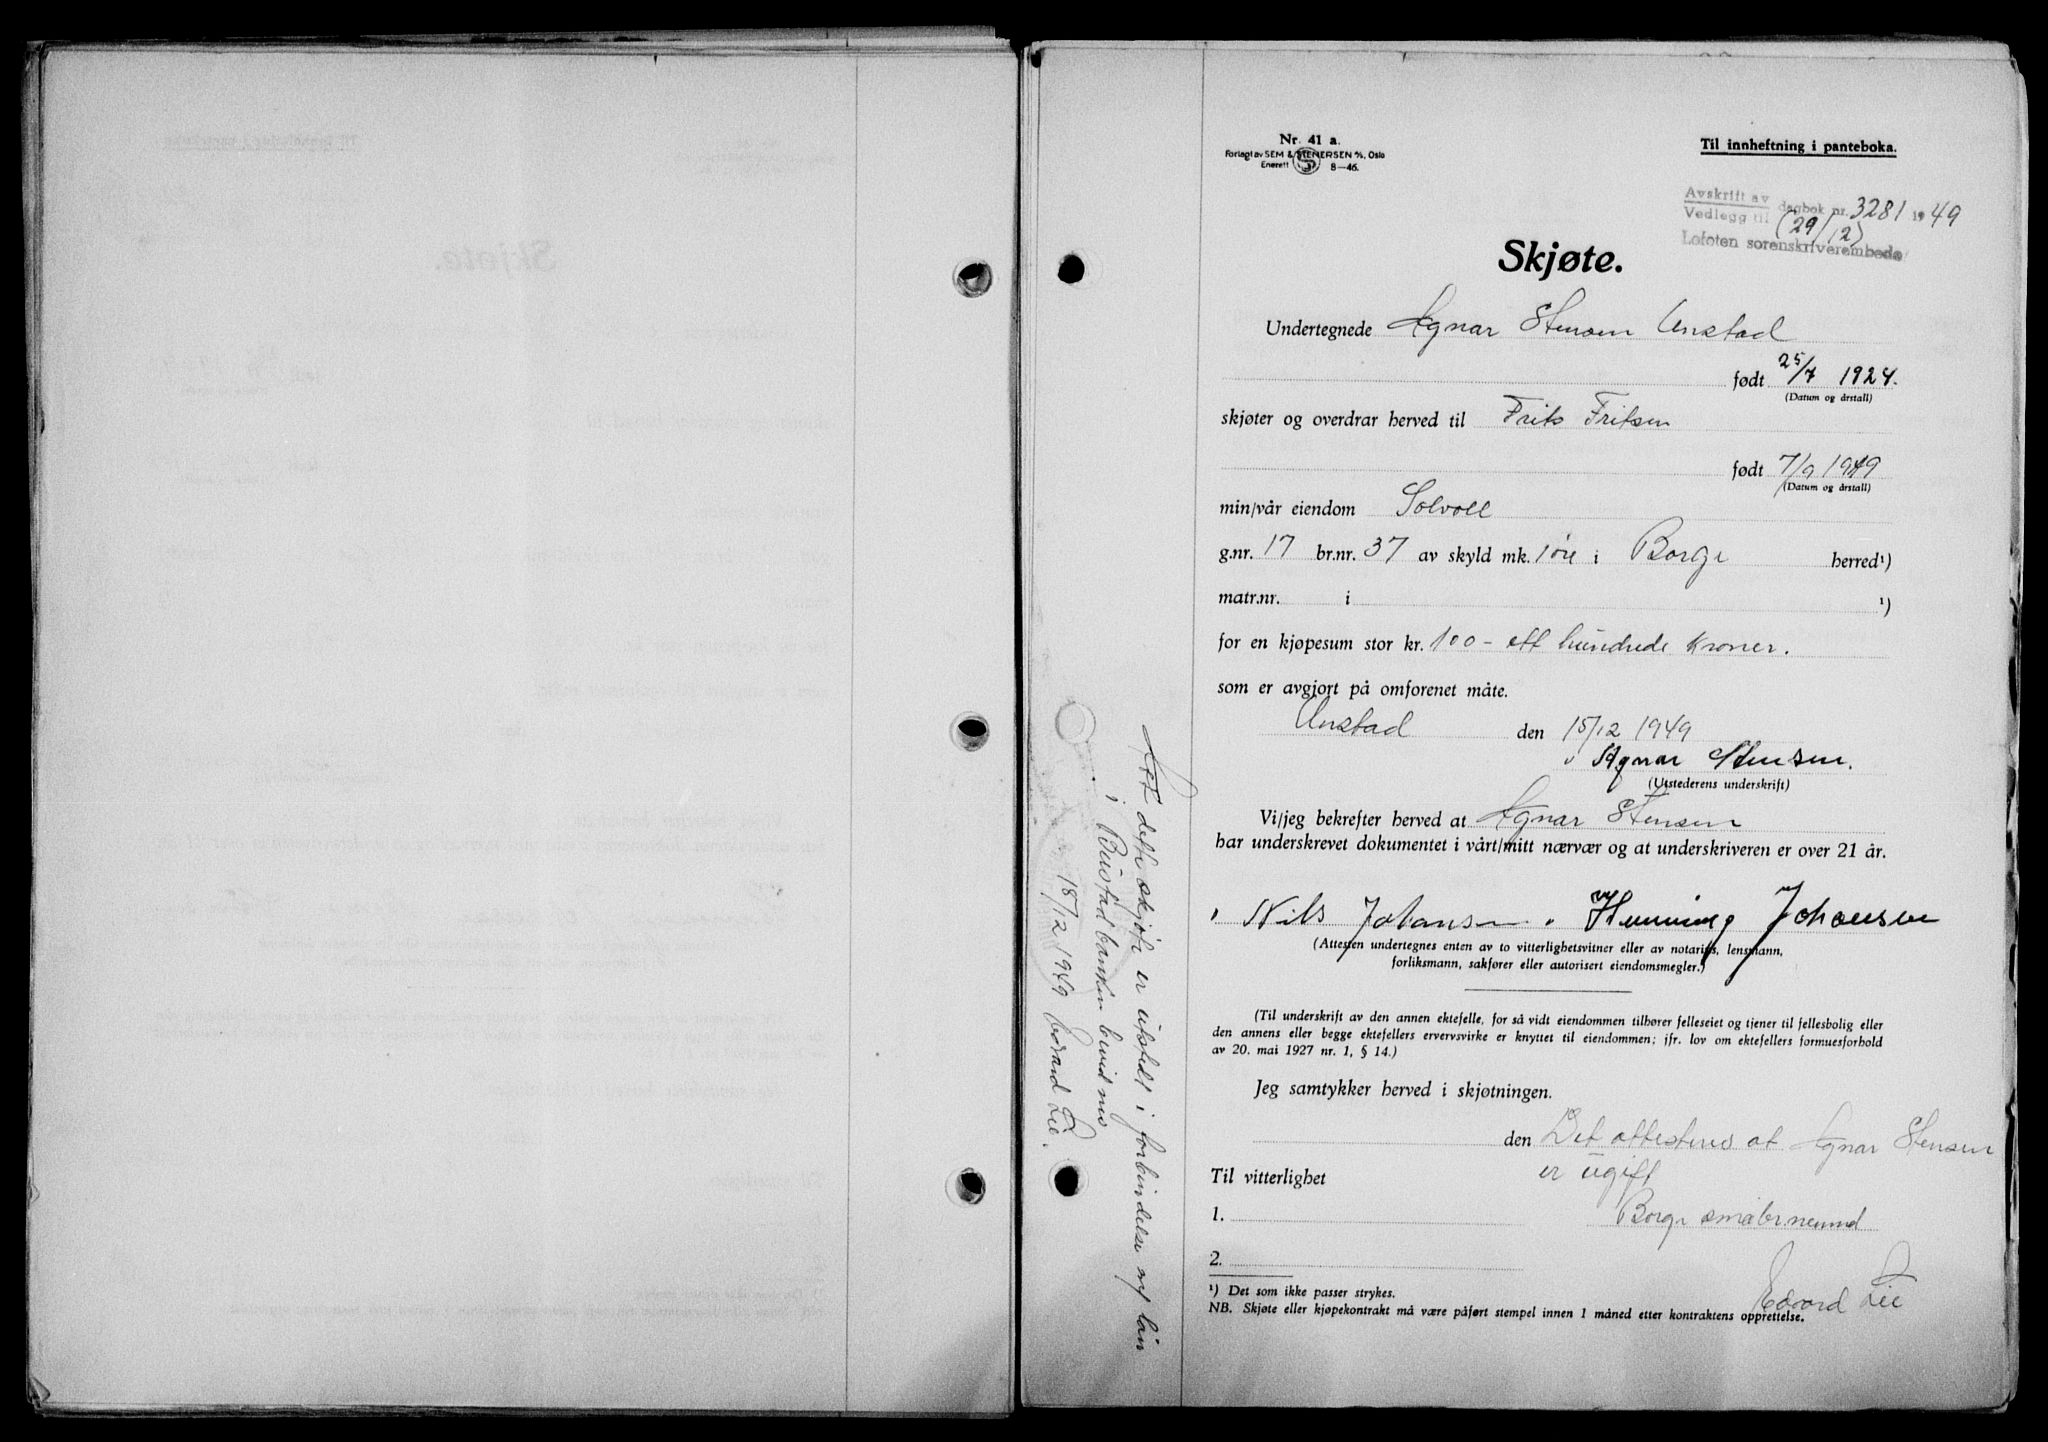 Nr. 41 a.
Forlagt av SEM & STENERSEN A/S, Oslo
Enerett 8—46.
Til innheftning i panteboka.
Avskrift av
Vedlegg til dagbok nr. 3281 1949
(29/12)
Lofoten sorenskriverembede
Skjøte.
Undertegnede Agnar Stensen Unstad
født 25/7 1924.
(Datum og årstall)
skjøter og overdrar herved til Frits Fritsen
født 7/9 1949
(Datum og årstall)
min/vår eiendom Solvoll
g.nr. 17 br.nr. 37 av skyld mk. 1 øre i Borge herred¹)
matr.nr. i ¹)
for en kjøpesum stor kr. 100 - ett hundrede kroner.
som er avgjort på omforenet måte.
Unstad den 15/12 1949
Agnar Stensen.
(Utstederens underskrift)
Vi/jeg bekrefter herved at Agnar Stensen
har underskrevet dokumentet i vårt/mitt nærvær og at underskriveren er over 21 år.
Nils Johansen. Henning Johansen
(Attesten undertegnes enten av to vitterlighetsvitner eller av notarius, lensmann,
forliksmann, sakfører eller autorisert eiendomsmegler.)
(Til underskrift av den annen ektefelle, for så vidt eiendommen tilhører felleseiet og tjener til fellesbolig eller
den annens eller begge ektefellers ervervsvirke er knyttet til eiendommen; jfr. lov om ektefellers formuesforhold
av 20. mai 1927 nr. 1, § 14.)
Jeg samtykker herved i skjøtningen.
den Det attesteres at Agnar Stensen
er ugift
Til vitterlighet
1. Borge småbr.nemnd
2.
Edvard Lie
¹) Det som ikke passer strykes.
NB. Skjøte eller kjøpekontrakt må være påført stempel innen 1 måned etter kontraktens opprettelse.
Att dette skjøte er utstedt i forbindelse m/ lån
i Bustadbanken bevidnes
18/12 1949 Edvard Lie.